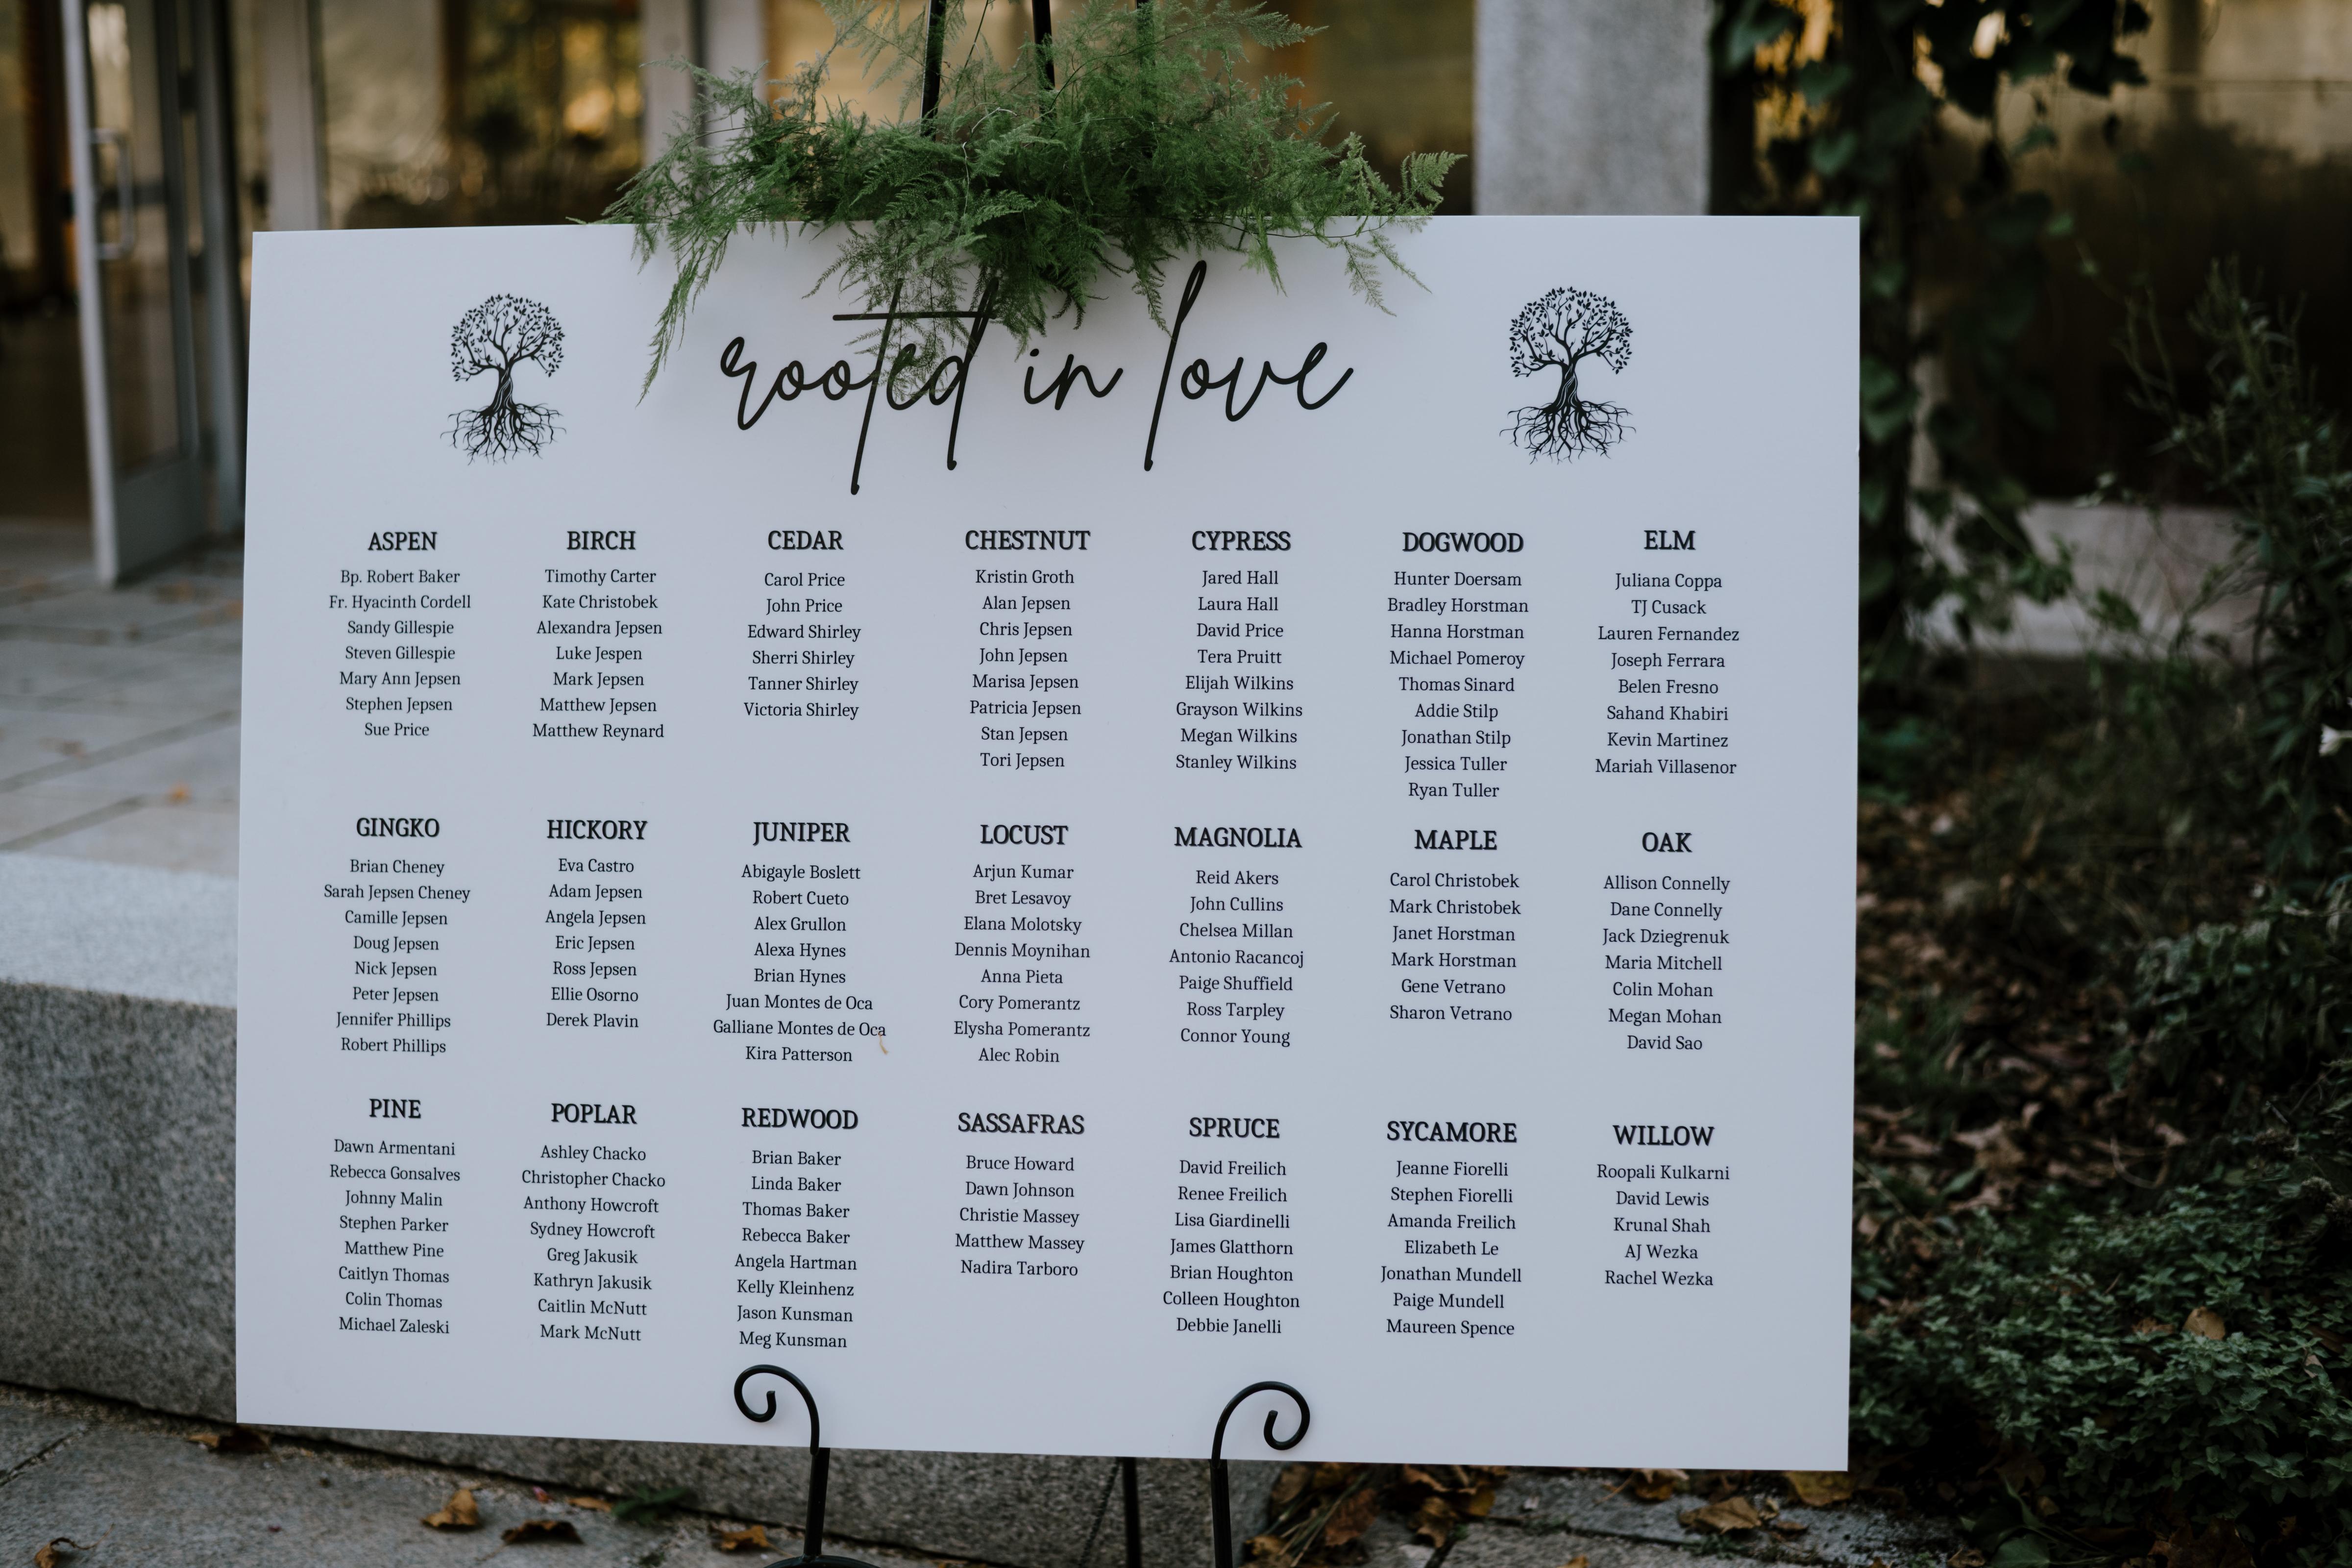 rooted in love
ASPEN
Bp. Robert Baker
Fr. Hyacinth Cordell
Sandy Gillespie
Steven Gillespie
Mary Ann Jepsen
Stephen Jepsen
Sue Price
BIRCH
Timothy Carter
Kate Christobek
Alexandra Jepsen
Luke Jespen
Mark Jepsen
Matthew Jepsen
Matthew Reynard
CEDAR
Carol Price
John Price
Edward Shirley
Sherri Shirley
Tanner Shirley
Victoria Shirley
CHESTNUT
Kristin Groth
Alan Jepsen
Chris Jepsen
John Jepsen
Marisa Jepsen
Patricia Jepsen
Stan Jepsen
Tori Jepsen
CYPRESS
Jared Hall
Laura Hall
David Price
Tera Pruitt
Elijah Wilkins
Grayson Wilkins
Megan Wilkins
Stanley Wilkins
DOGWOOD
Hunter Doersam
Bradley Horstman
Hanna Horstman
Michael Pomeroy
Thomas Sinard
Addie Stilp
Jonathan Stilp
Jessica Tuller
Ryan Tuller
ELM
Juliana Coppa
TJ Cusack
Lauren Fernandez
Joseph Ferrara
Belen Fresno
Sahand Khabiri
Kevin Martinez
Mariah Villasenor
GINGKO
Brian Cheney
Sarah Jepsen Cheney
Camille Jepsen
Doug Jepsen
Nick Jepsen
Peter Jepsen
Jennifer Phillips
Robert Phillips
HICKORY
Eva Castro
Adam Jepsen
Angela Jepsen
Eric Jepsen
Ross Jepsen
Ellie Osorno
Derek Plavin
JUNIPER
Abigayle Boslett
Robert Cueto
Alex Grullon
Alexa Hynes
Brian Hynes
Juan Montes de Oca
Galliane Montes de Oca
Kira Patterson
LOCUST
Arjun Kumar
Bret Lesavoy
Elana Molotsky
Dennis Moynihan
Anna Pieta
Cory Pomerantz
Elysha Pomerantz
Alec Robin
MAGNOLIA
Reid Akers
John Cullins
Chelsea Millan
Antonio Racancoj
Paige Shuffield
Ross Tarpley
Connor Young
MAPLE
Carol Christobek
Mark Christobek
Janet Horstman
Mark Horstman
Gene Vetrano
Sharon Vetrano
OAK
Allison Connelly
Dane Connelly
Jack Dziegrenuk
Maria Mitchell
Colin Mohan
Megan Mohan
David Sao
PINE
Dawn Armentani
Rebecca Gonsalves
Johnny Malin
Stephen Parker
Matthew Pine
Caitlyn Thomas
Colin Thomas
Michael Zaleski
POPLAR
Ashley Chacko
Christopher Chacko
Anthony Howcroft
Sydney Howcroft
Greg Jakusik
Kathryn Jakusik
Caitlin McNutt
Mark McNutt
REDWOOD
Brian Baker
Linda Baker
Thomas Baker
Rebecca Baker
Angela Hartman
Kelly Kleinhenz
Jason Kunsman
Meg Kunsman
SASSAFRAS
Bruce Howard
Dawn Johnson
Christie Massey
Matthew Massey
Nadira Tarboro
SPRUCE
David Freilich
Renee Freilich
Lisa Giardinelli
James Glatthorn
Brian Houghton
Colleen Houghton
Debbie Janelli
SYCAMORE
Jeanne Fiorelli
Stephen Fiorelli
Amanda Freilich
Elizabeth Le
Jonathan Mundell
Paige Mundell
Maureen Spence
WILLOW
Roopali Kulkarni
David Lewis
Krunal Shah
AJ Wezka
Rachel Wezka